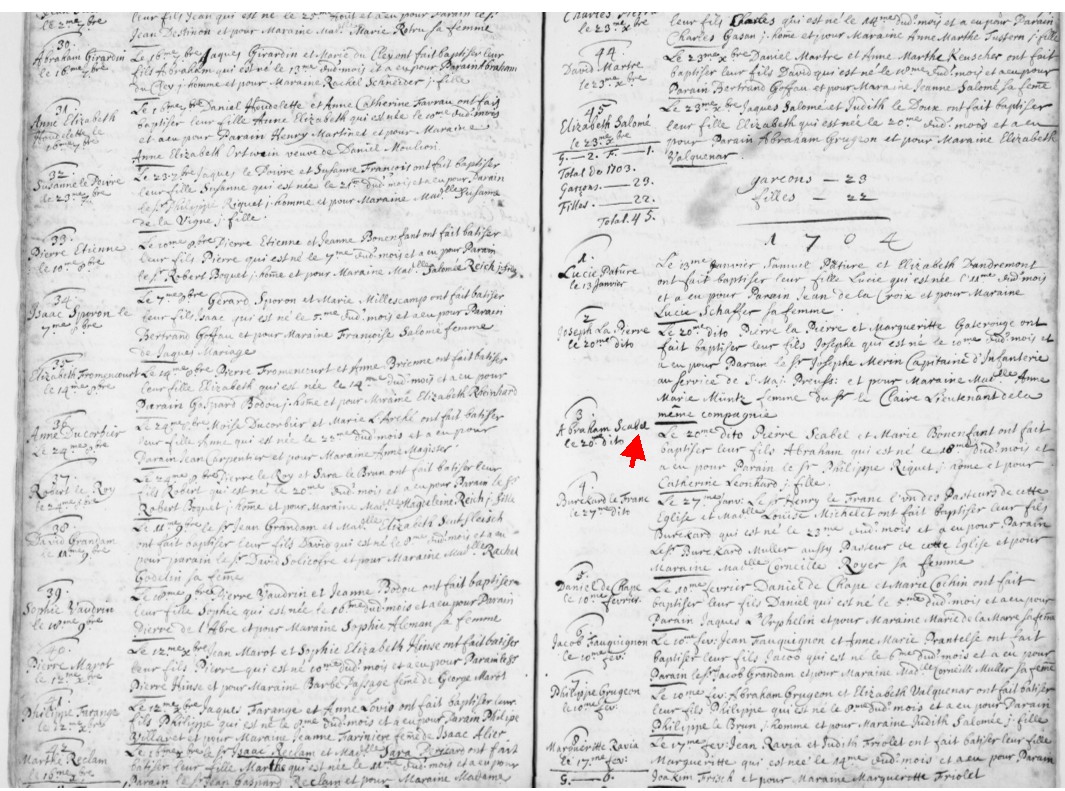 leur fils Jean qui est né le 25 Aout et a eu pour Parain
Jean Destinon et pour Maraine Marie Rotru sa femme
30
Abraham Girardin
le 16me 7bre
Le 16me 7bre Jaques Girardin et Marie du Cley ont fait baptiser leur
fils Abraham qui est né le 13me dud: mois et a eu pour Parain Abraham
du Cley j: homme et pour Maraine Rachel Schneider j: fille
31
Anne Elizabeth
Houdelette le
16me 7bre
Le 16me 7bre Daniel Houdelette et Anne Catherine Favrau ont fait
baptiser leur fille Anne Elizabeth qui est née le 10me dud: mois
et a eu pour Parain Henry Martinet et pour Maraine
Anne Elizabeth Ortwein veuve de Daniel Moulion
32
Susanne le Poivre
le 23me 7bre
Le 23 7bre Jaques le Poivre et Susanne François ont fait baptiser
leur fille Susanne qui est née le 21me dud: mois et a eu pour Parain
le Sr Philippe Riquet j: homme et pour Maraine Madlle Susanne
de la Vigne j: fille
33
Pierre Etienne
le 10me 8bre
Le 10me 8bre Pierre Etienne et Jeanne Bonenfant ont fait batiser
leur fils Pierre qui est né le 7me dud: mois et a eu pour Parain
le Sr Robert Boquet j: home et pour Maraine Madlle Salomée Reich j: fille
34
Isaac Sporon le
7me 9bre
Le 7me 9bre Gerard Sporon et Marie Millescamps ont fait batiser
leur fils Isaac qui est né le 5me dud: mois et a eu pour Parain
Bertrand Goffau et pour Maraine Françoise Salomé femme
de Jaques Mariage
35
Elizabeth Fromencourt
le 14me 9bre
Le 14me 9bre Pierre Fromencourt et Anne Brienne ont fait batiser
leur fille Elizabeth qui est née le 14me dud: mois et a eu pour
Parain Gaspard Bodou j: home et pour Maraine Elizabeth Rheinhard
36
Anne Ducorbier
le 24me 9bre
Le 24me 9bre Moise Ducorbier et Marie L'Arché ont fait batiser
leur fille Anne qui est née le 23me dud: mois et a eu pour
Parain Jean Carpentier et pour Maraine Anne Magister
37
Robert le Roy
le 24me 9bre
Le 24me 9bre Pierre le Roy et Sara le Brun ont fait batiser leur
fils Robert qui est né le 20me dud: mois et a eu pour Parain le Sr
Robert Boquet j: home et pour Maraine Madlle Magdeleine Reich j: fille
38
David Grandam
le 11me 9bre
Le 11me 9bre le Sr Jean Grandam et Madlle Elizabeth Gutsfleisch
ont fait baptiser leur fils David qui est né le 9me dud: mois et a eu
pour parain le Sr David Solicofre et pour Maraine Madlle Rachel
Godelin sa feme
39
Sophie Vaudrin
le 10me 9bre
Le 10me 9bre Pierre Vaudrin et Jeanne Bodou ont fait baptiser
leur fille Sophie qui est née le 16me dud: mois et a eu pour Parain
Pierre de l'Abre et pour Maraine Sophie Aleman sa femme
40
Pierre Marot
le 12me xbre
Le 12me xbre Jean Marot et Sophie Elizabeth Hinse ont fait batiser
leur fils Pierre qui est né le 10me dud: mois et a eu pour Parain le Sr
Pierre Hinse et pour Maraine Barbe Passage feme de George Marot
41
Philippe Farange
le 12me xbre
Le 12me xbre Jaques Farange et Anne Lovio ont fait baptiser leur
fils Philippe qui est né le 9me dud: mois et a eu pour Parain Philipe
Villaret et pour Maraine Jeanne Fariniere feme de Isaac Alier
42
Marthe Reclam
le 16me xbre
Le 16me xbre le Sr Isaac Reclam et Madlle Sara ont fait
batiser leur fille Marthe qui est née le 11me dud: mois et a eu pour
Parain le Sr Jean Gaspard Reclam et pour Maraine Madame
le 23 xbre
leur fils Charles qui est né le 14me dud: mois et a eu pour Parain
Charles Gasan j: home et pour Maraine Anne Marthe Tustern j: fille
44
David Martre
le 23me xbre
Le 23me xbre Daniel Martre et Anne Marthe Keuscher ont fait
baptiser leur fils David qui est né le 18me dud: mois et a eu pour
Parain Bertrand Goffau et pour Maraine Jeanne Salomé sa feme
45
Elizabeth Salomé
le 23 xbre
Le 23me xbre Jaques Salomé et Judith le Doux ont fait baptiser
leur fille Elizabeth qui est née le 20me dud: mois et a eu
pour Parain Abraham Grugeon et pour Maraine Elizabeth
Valquenar
G. — 2. F. — 1.
Total de 1703.
Garçons. — 23.
Filles. — 22.
Total. 45.
garçons — 23
filles — 22
1704
1
Lucie Pature
le 13 Janvier
Le 13me Janvier Samuel Pature et Elizabeth Dandremont
ont fait baptiser leur fille Lucie qui est née l'11me dud: mois
et a eu pour Parain Jean de la Croix et pour Maraine
Lucie Schaffer sa femme
2
Joseph La Pierre
le 20me dito
Le 20me dito Pierre la Pierre et Margueritte Gaterouge ont
fait baptiser leur fils Josephe qui est né le 10me dud: mois et
a eu pour Parain le Sr Josephe Merin Capitaine d'Infanterie
au service de S: Maj: Preuss: et pour Maraine Madlle Anne
Marie Mintz femme du Sr le Claire Lieutenant de la
même compagnie
3
Abraham Scabel
le 20me dito
Le 20me dito Pierre Scabel et Marie Bonenfant ont fait
baptiser leur fils Abraham qui est né le 18me dud: mois et
a eu pour Parain le Sr Philippe Riquet j: home et pour
Catherine Leonhard j: fille
4
Burckard le Franc
le 27me dito
Le 27me Janv: le Sr Henry le Franc l'un des Pasteurs de cette
Eglise et Madlle Louise Michelet ont fait baptiser leur fils
Burckard qui est né le 23me dud: mois et a eu pour Parain
le Sr Burckard Muller aussy Pasteur de cette Eglise et pour
Maraine Madlle Corneille Royer sa femme
5
Daniel de Chape
le 10me fevrier
Le 10me fevrier Daniel de Chape et Marie Cochin ont fait
baptiser leur fils Daniel qui est né le 5me dud: mois et a eu pour
Parain Jaques l'Orphelin et pour Maraine Marie de la Marre sa feme
6
Jacob Fauquignon
le 10me fev:
Le 10me fev: Jean Fauquignon et Anne Marie Prantelse ont fait
baptiser leur fils Jacob qui est né le 6me dud: mois et a eu pour
Parain le Sr Jacob Grandam et pour Maraine Madlle Corneille Muller sa feme
7
Philippe Grugeon
le 10me fev:
Le 10me fev: Abraham Grugeon et Elizabeth Valquenar ont fait batiser
leur fils Philippe qui est né le 8me dud: mois et a eu pour Parain
Philippe le Brun j: homme et pour Maraine Judith Salomée j: fille
8
Margueritte Ravia
le 17me fev:
Le 17me fev: Jean Ravia et Judith Friolet ont fait batiser leur fille
Margueritte qui est née le 14me dud: mois et a eu pour Parain
Joakim Frisch et pour Maraine Marguerette Friolet
G. — 0.